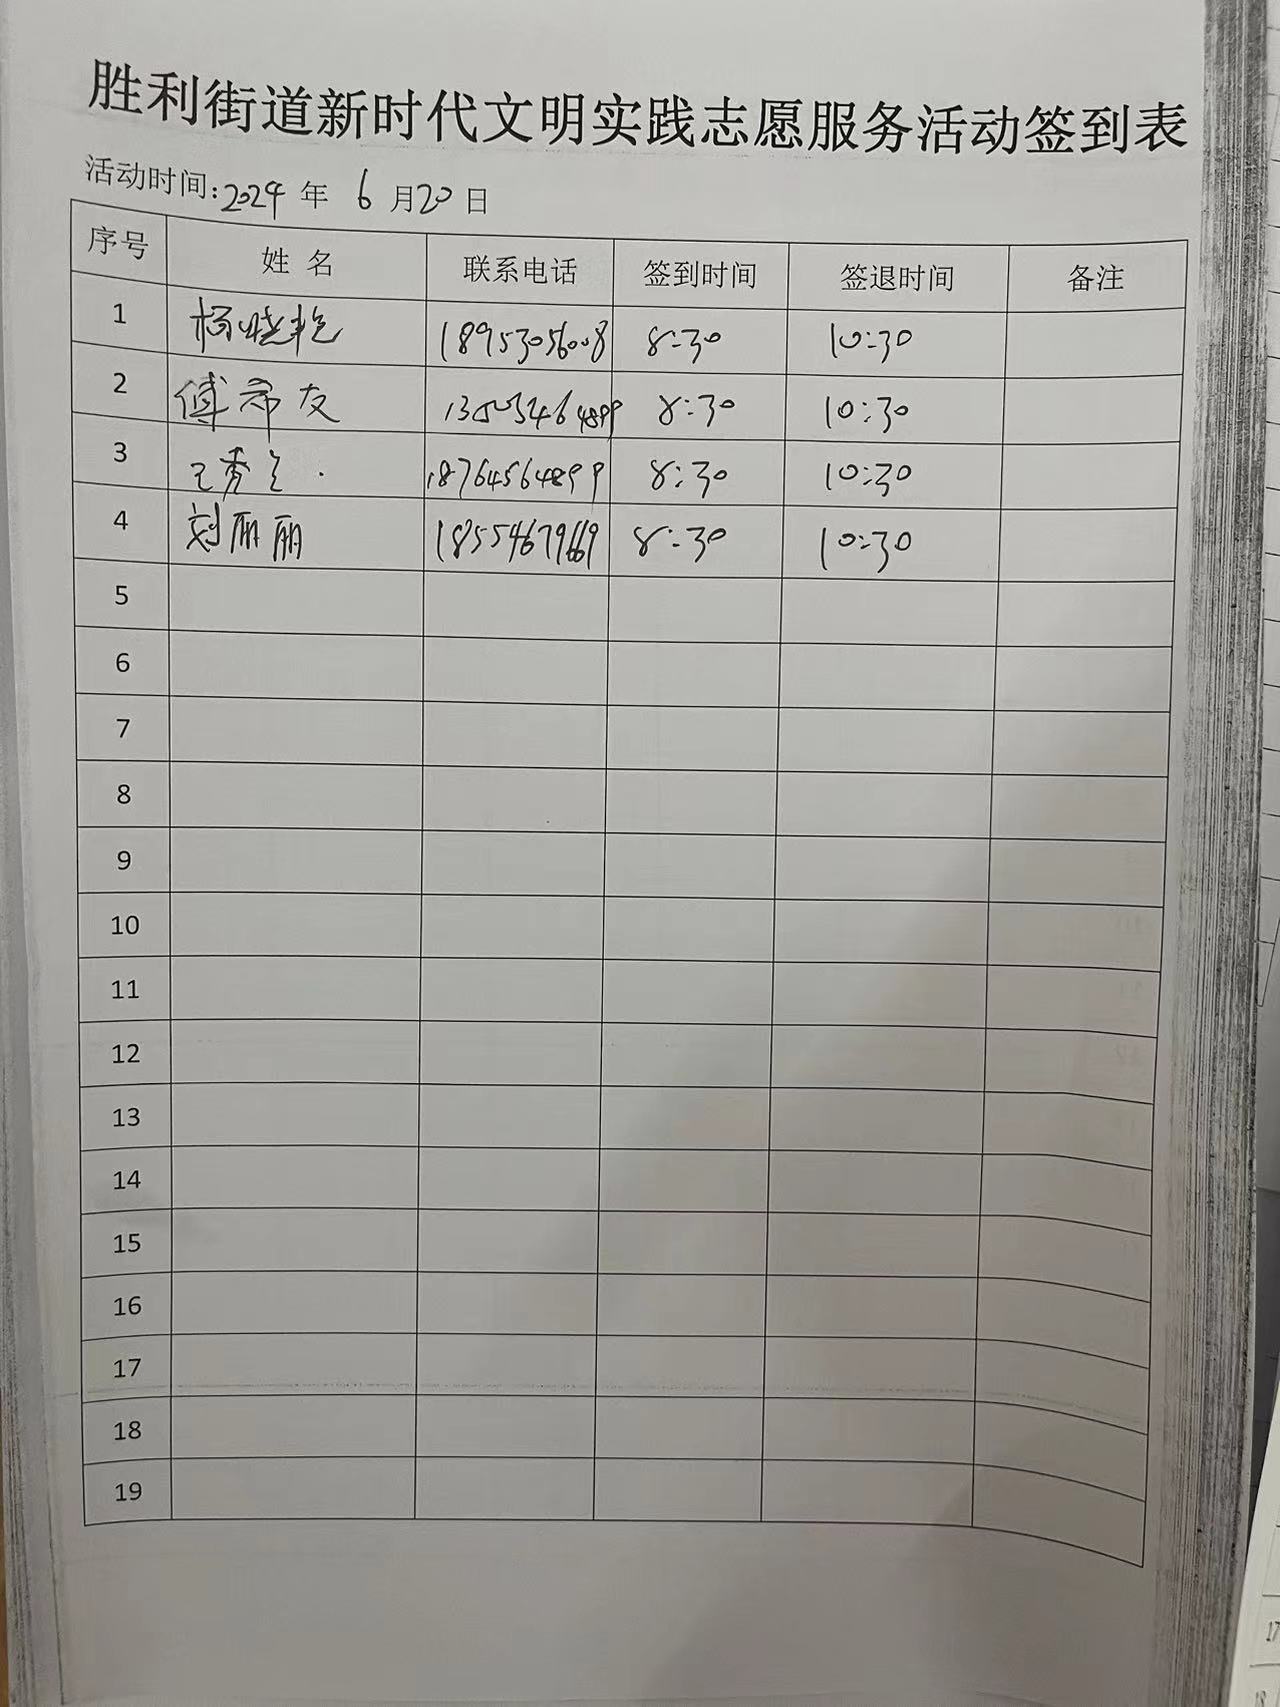 胜利街道新时代文明实践志愿服务活动签到表
活动时间:2024 年 6 月20 日
序号 姓 名 联系电话 签到时间 签退时间 备注
1 杨晓艳 18953056008 8:30 10:30
2 傅希友 8:30 10:30
3 王秀兰 18764564899 8:30 10:30
4 刘丽丽 18554679669 8:30 10:30
5
6
7
8
9
10
11
12
13
14
15
16
17
18
19
17